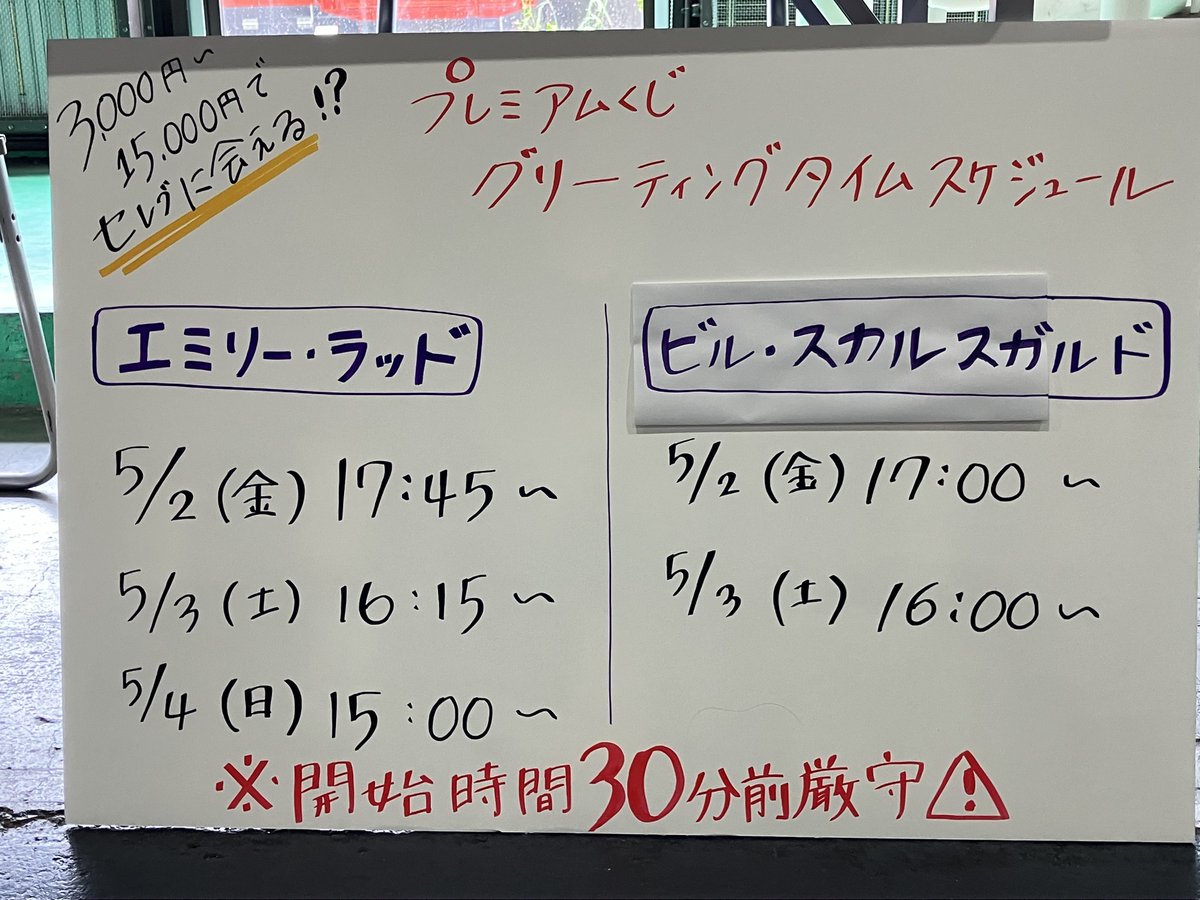 3,000円〜
15,000円で
セレブに会える!?
プレミアムくじ
グリーティングタイムスケジュール
エミリー・ラッド
5/2(金)17:45〜
5/3(土)16:15〜
5/4(日)15:00〜
ビル・スカルスガルド
5/2(金)17:00〜
5/3(土)16:00〜
※開始時間30分前厳守⚠